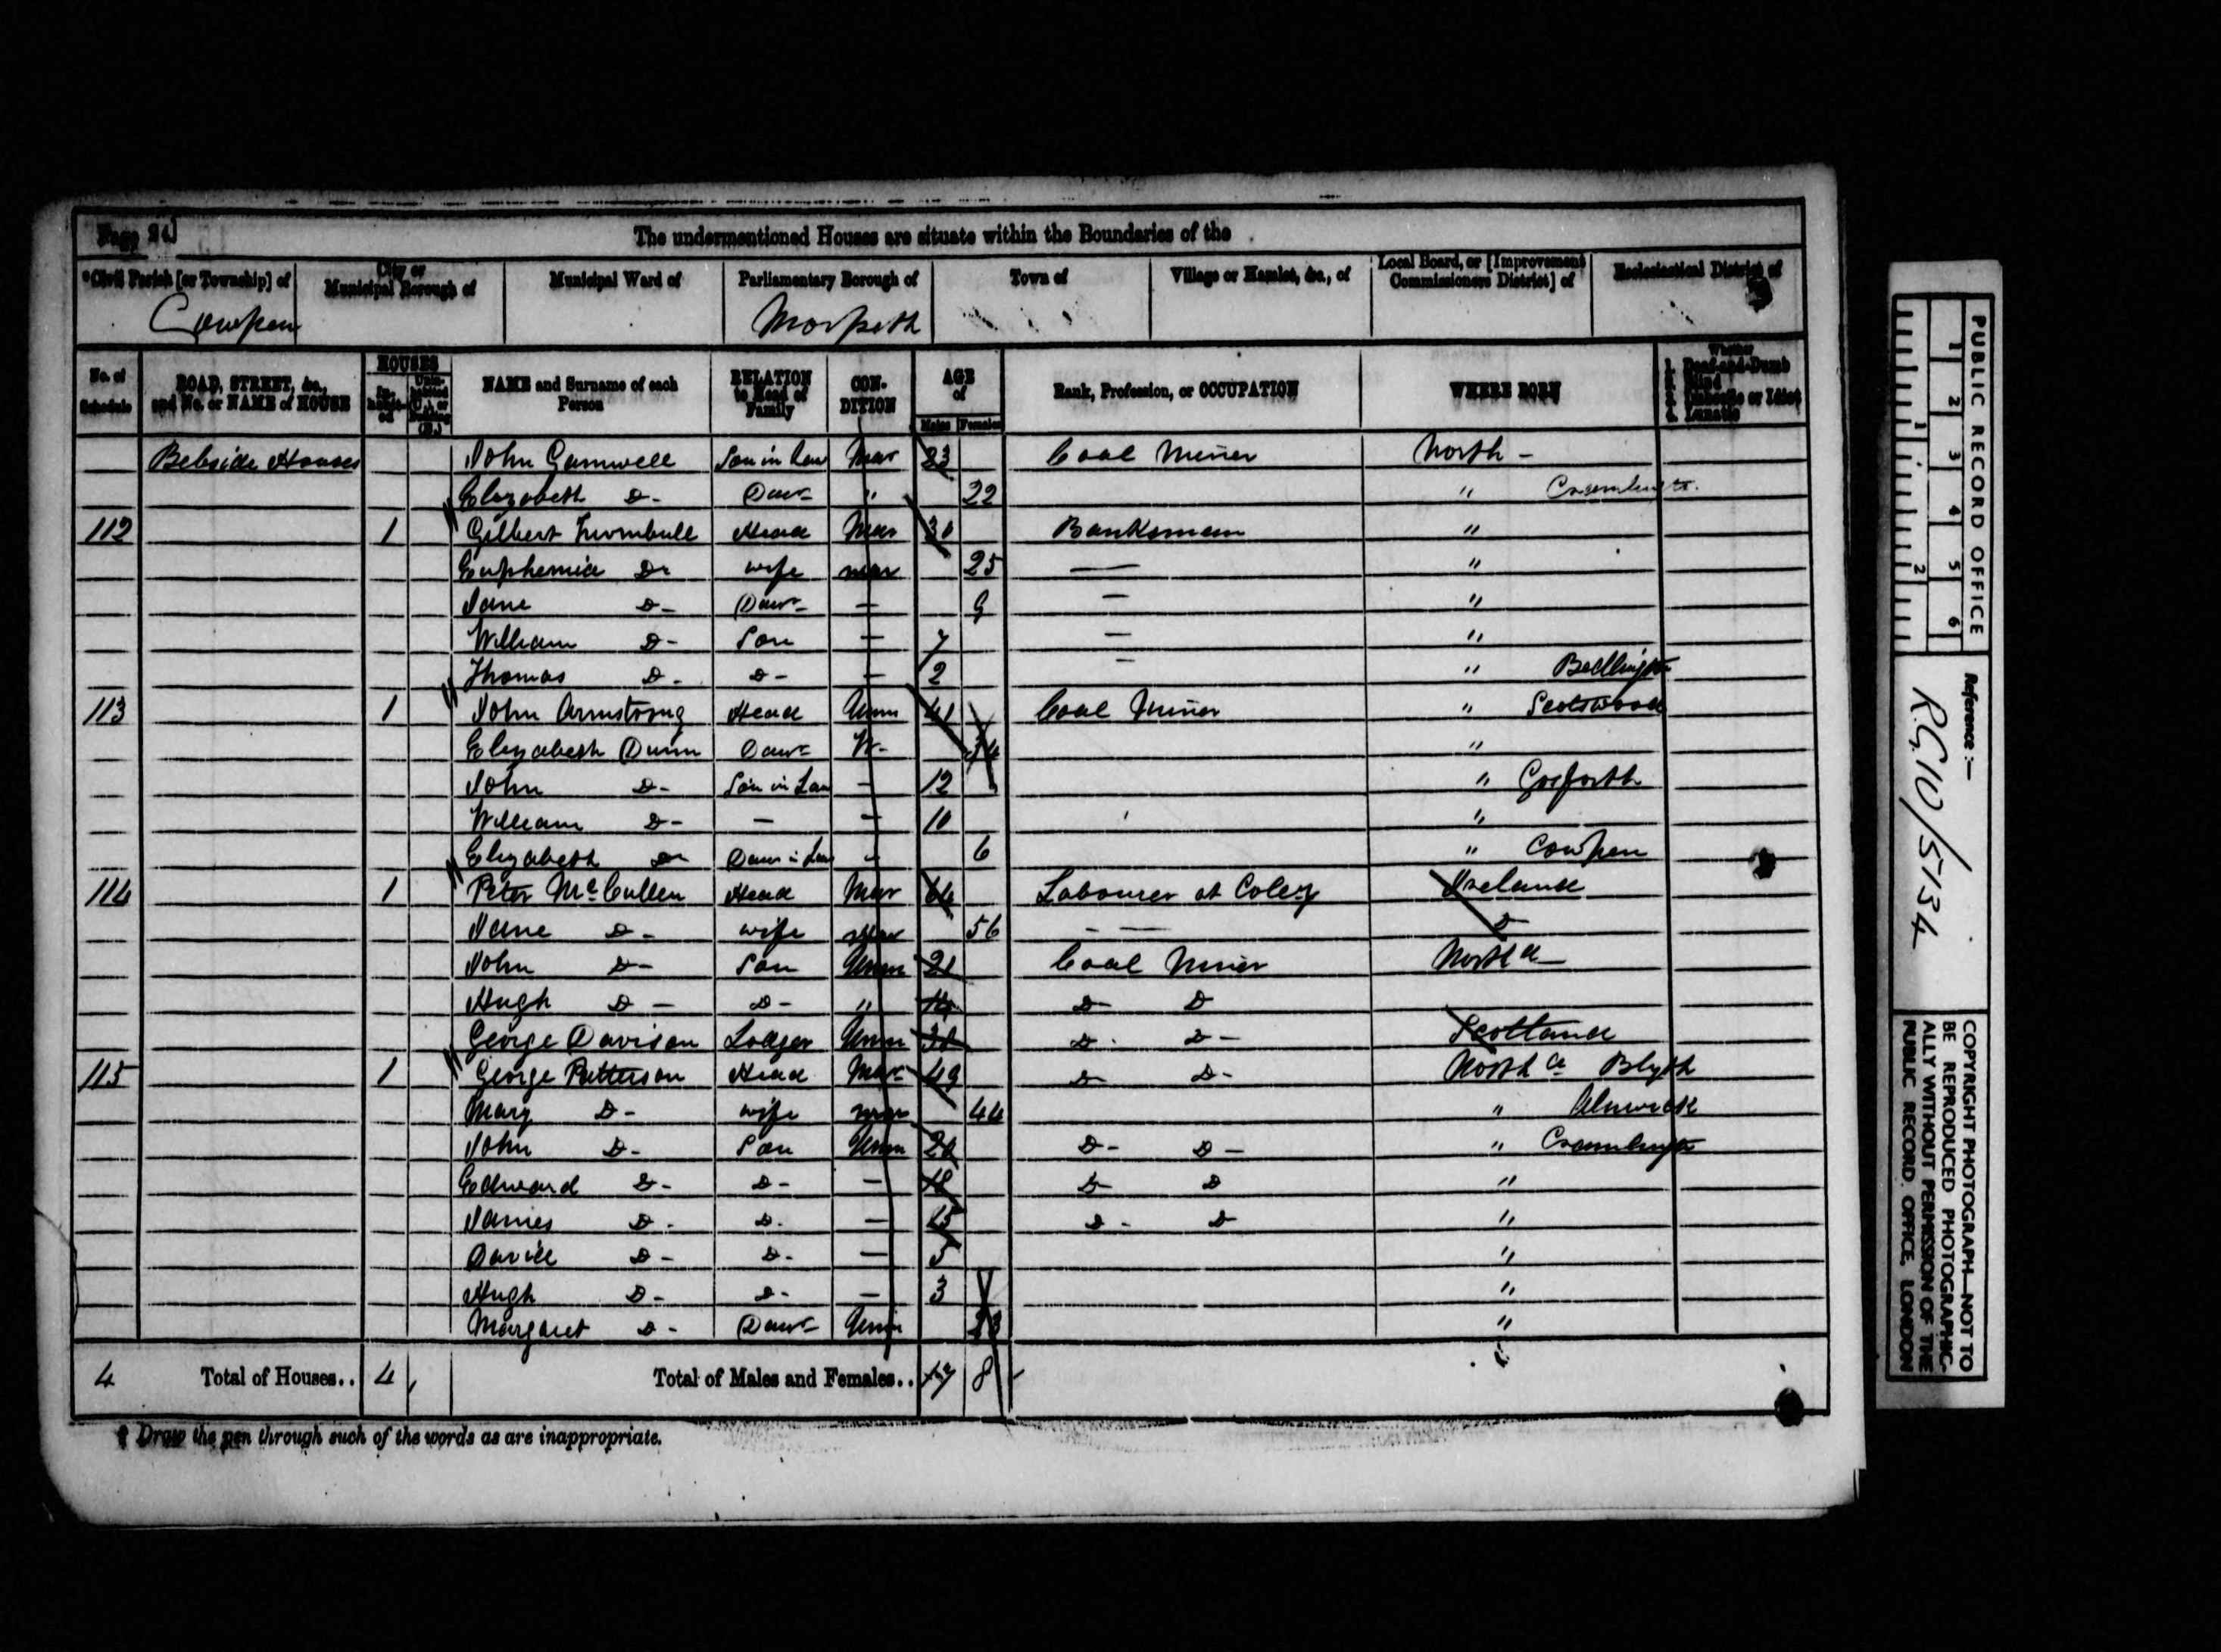 Page 24]
The undermentioned Houses are situate within the Boundaries of the
*Civil Parish [or Township] of
City or Municipal Borough of
Municipal Ward of
Parliamentary Borough of
Town of
Village or Hamlet, &c., of
Local Board, or [Improvement Commissioners District] of
Ecclesiastical District of
Cowpen
Morpeth
No. of Schedule
ROAD, STREET, &c., and No. or NAME of HOUSE
HOUSES
In-habit-ed
Unin-habited (U.), or Building (B.)
NAME and Surname of each Person
RELATION to Head of Family
CON-DITION
AGE of
Males Females
Rank, Profession, or OCCUPATION
WHERE BORN
Whether
1. Deaf-and-Dumb
2. Blind
3. Imbecile or Idiot
4. Lunatic
Bebside Houses John Gamwell Son in Law Mar 23 Coal Miner North -
Elizabeth D- Daur " 22 "
112 1 Gilbert Turnbull Head Mar Banksman "
Euphemia Do wife mar 25 — "
Jane D- Daur — 9 — "
William D- Son — 7 — "
Thomas D- D- — 2 — " Bedlington
113 1 John Armstrong Head Unm 41 Coal Miner " Scotswood
Elizabeth Dunn Daur W- "
John D- Son in Law — 12 " Gosforth
William D- — — 10 "
Elizabeth Do Daur in Law - 6 " Cowpen
114 1 Peter McCullen Head Mar 64 Labourer at Coley Ireland
Jane D- wife Mar 56 — D
John D- Son Unm 21 Coal Miner Northd
Hugh D- D- " D- D
George Davison Lodger Unm D- D- Scotland
115 1 George Patterson Head Mar 49 D- D- Northd Blyth
Mary D- wife mar 44 " Alnwick
John D- Son Unm 20 D- D- " Cramlington
Edward D- D- — 18 D- D "
James D- D- — 15 D- D "
David D- D- — 5 "
Hugh D- D- — 3 "
Margaret D- Daur Unm 23 "
4 Total of Houses.. 4 Total of Males and Females.. 17 8
† Draw the pen through such of the words as are inappropriate.
PUBLIC RECORD OFFICE
1 2 3 4 5 6
1 2
Reference :—
R.G.10/5134
COPYRIGHT PHOTOGRAPH—NOT TO
BE REPRODUCED PHOTOGRAPHIC-
ALLY WITHOUT PERMISSION OF THE
PUBLIC RECORD OFFICE, LONDON